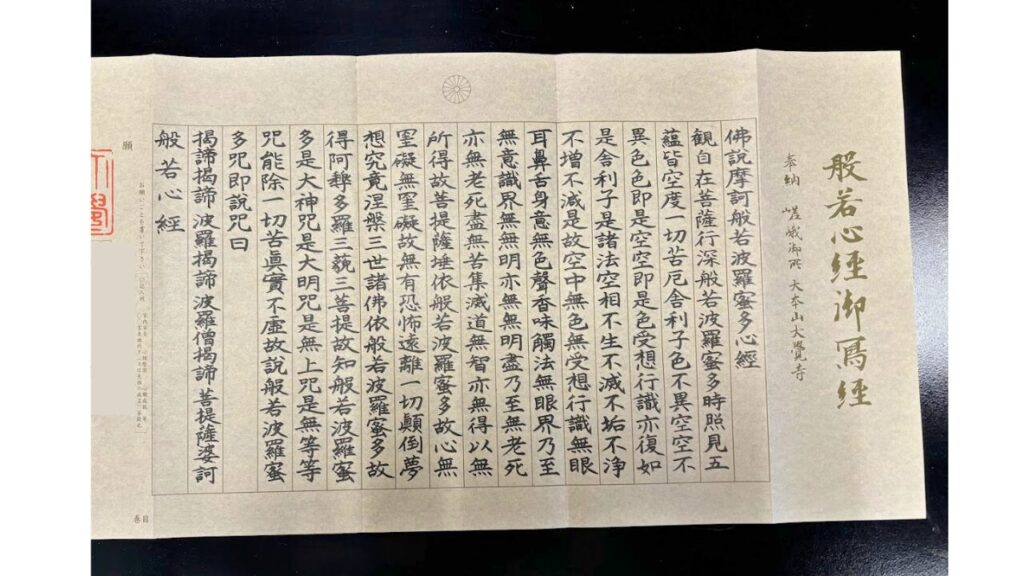 般若心經御寫經
奉納 嵯峨御所 大本山大覺寺
佛說摩訶般若波羅蜜多心經
觀自在菩薩行深般若波羅蜜多時照見五
蘊皆空度一切苦厄舍利子色不異空空不
異色色即是空空即是色受想行識亦復如
是舍利子是諸法空相不生不滅不垢不淨
不增不減是故空中無色無受想行識無眼
耳鼻舌身意無色聲香味觸法無眼界乃至
無意識界無無明亦無無明盡乃至無老死
亦無老死盡無苦集滅道無智亦無得以無
所得故菩提薩埵依般若波羅蜜多故心無
罣礙無罣礙故無有恐怖遠離一切顛倒夢
想究竟涅槃三世諸佛依般若波羅蜜多故
得阿耨多羅三藐三菩提故知般若波羅蜜
多是大神咒是大明咒是無上咒是無等等
咒能除一切苦眞實不虛故說般若波羅蜜
多咒即說咒曰
揭諦揭諦 波羅揭諦 波羅僧揭諦 菩提薩婆訶
般若心經
願
お願いごとを書いて下さい